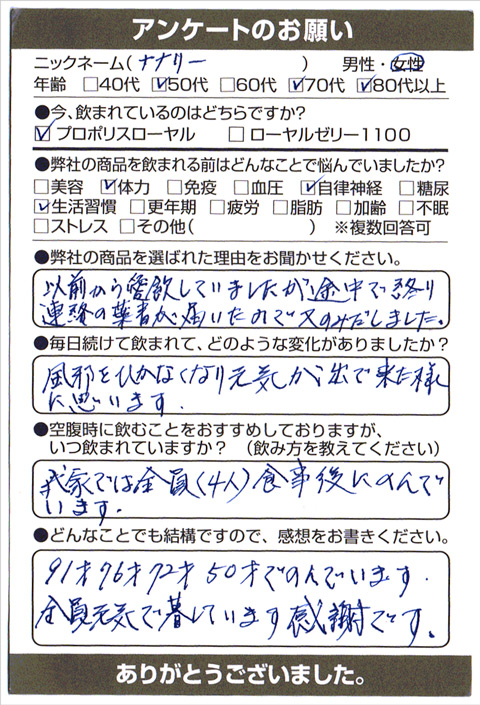 アンケートのお願い
ニックネーム(ナナリー) 男性・女性
年齢 □40代 ☑50代 □60代 ☑70代 ☑80代以上
●今、飲まれているのはどちらですか?
☑プロポリスローヤル □ローヤルゼリー1100
●弊社の商品を飲まれる前はどんなことで悩んでいましたか?
□美容 ☑体力 □免疫 □血圧 ☑自律神経 □糖尿
☑生活習慣 □更年期 □疲労 □脂肪 □加齢 □不眠
□ストレス □その他( ) ※複数回答可
●弊社の商品を選ばれた理由をお聞かせください。
以前から愛飲していましたが途中で終り
連絡の葉書が届いたので又のみだしました。
●毎日続けて飲まれて、どのような変化がありましたか?
風邪をひかなくなり元気が出て来た様
に思います.
●空腹時に飲むことをおすすめしておりますが、
いつ飲まれていますか? (飲み方を教えてください)
我家では全員(4人)食事後にのんで
います.
●どんなことでも結構ですので、感想をお書きください。
91才 76才 72才 50才でのんでいます.
全員元気で暮しています 感謝です。
ありがとうございました。